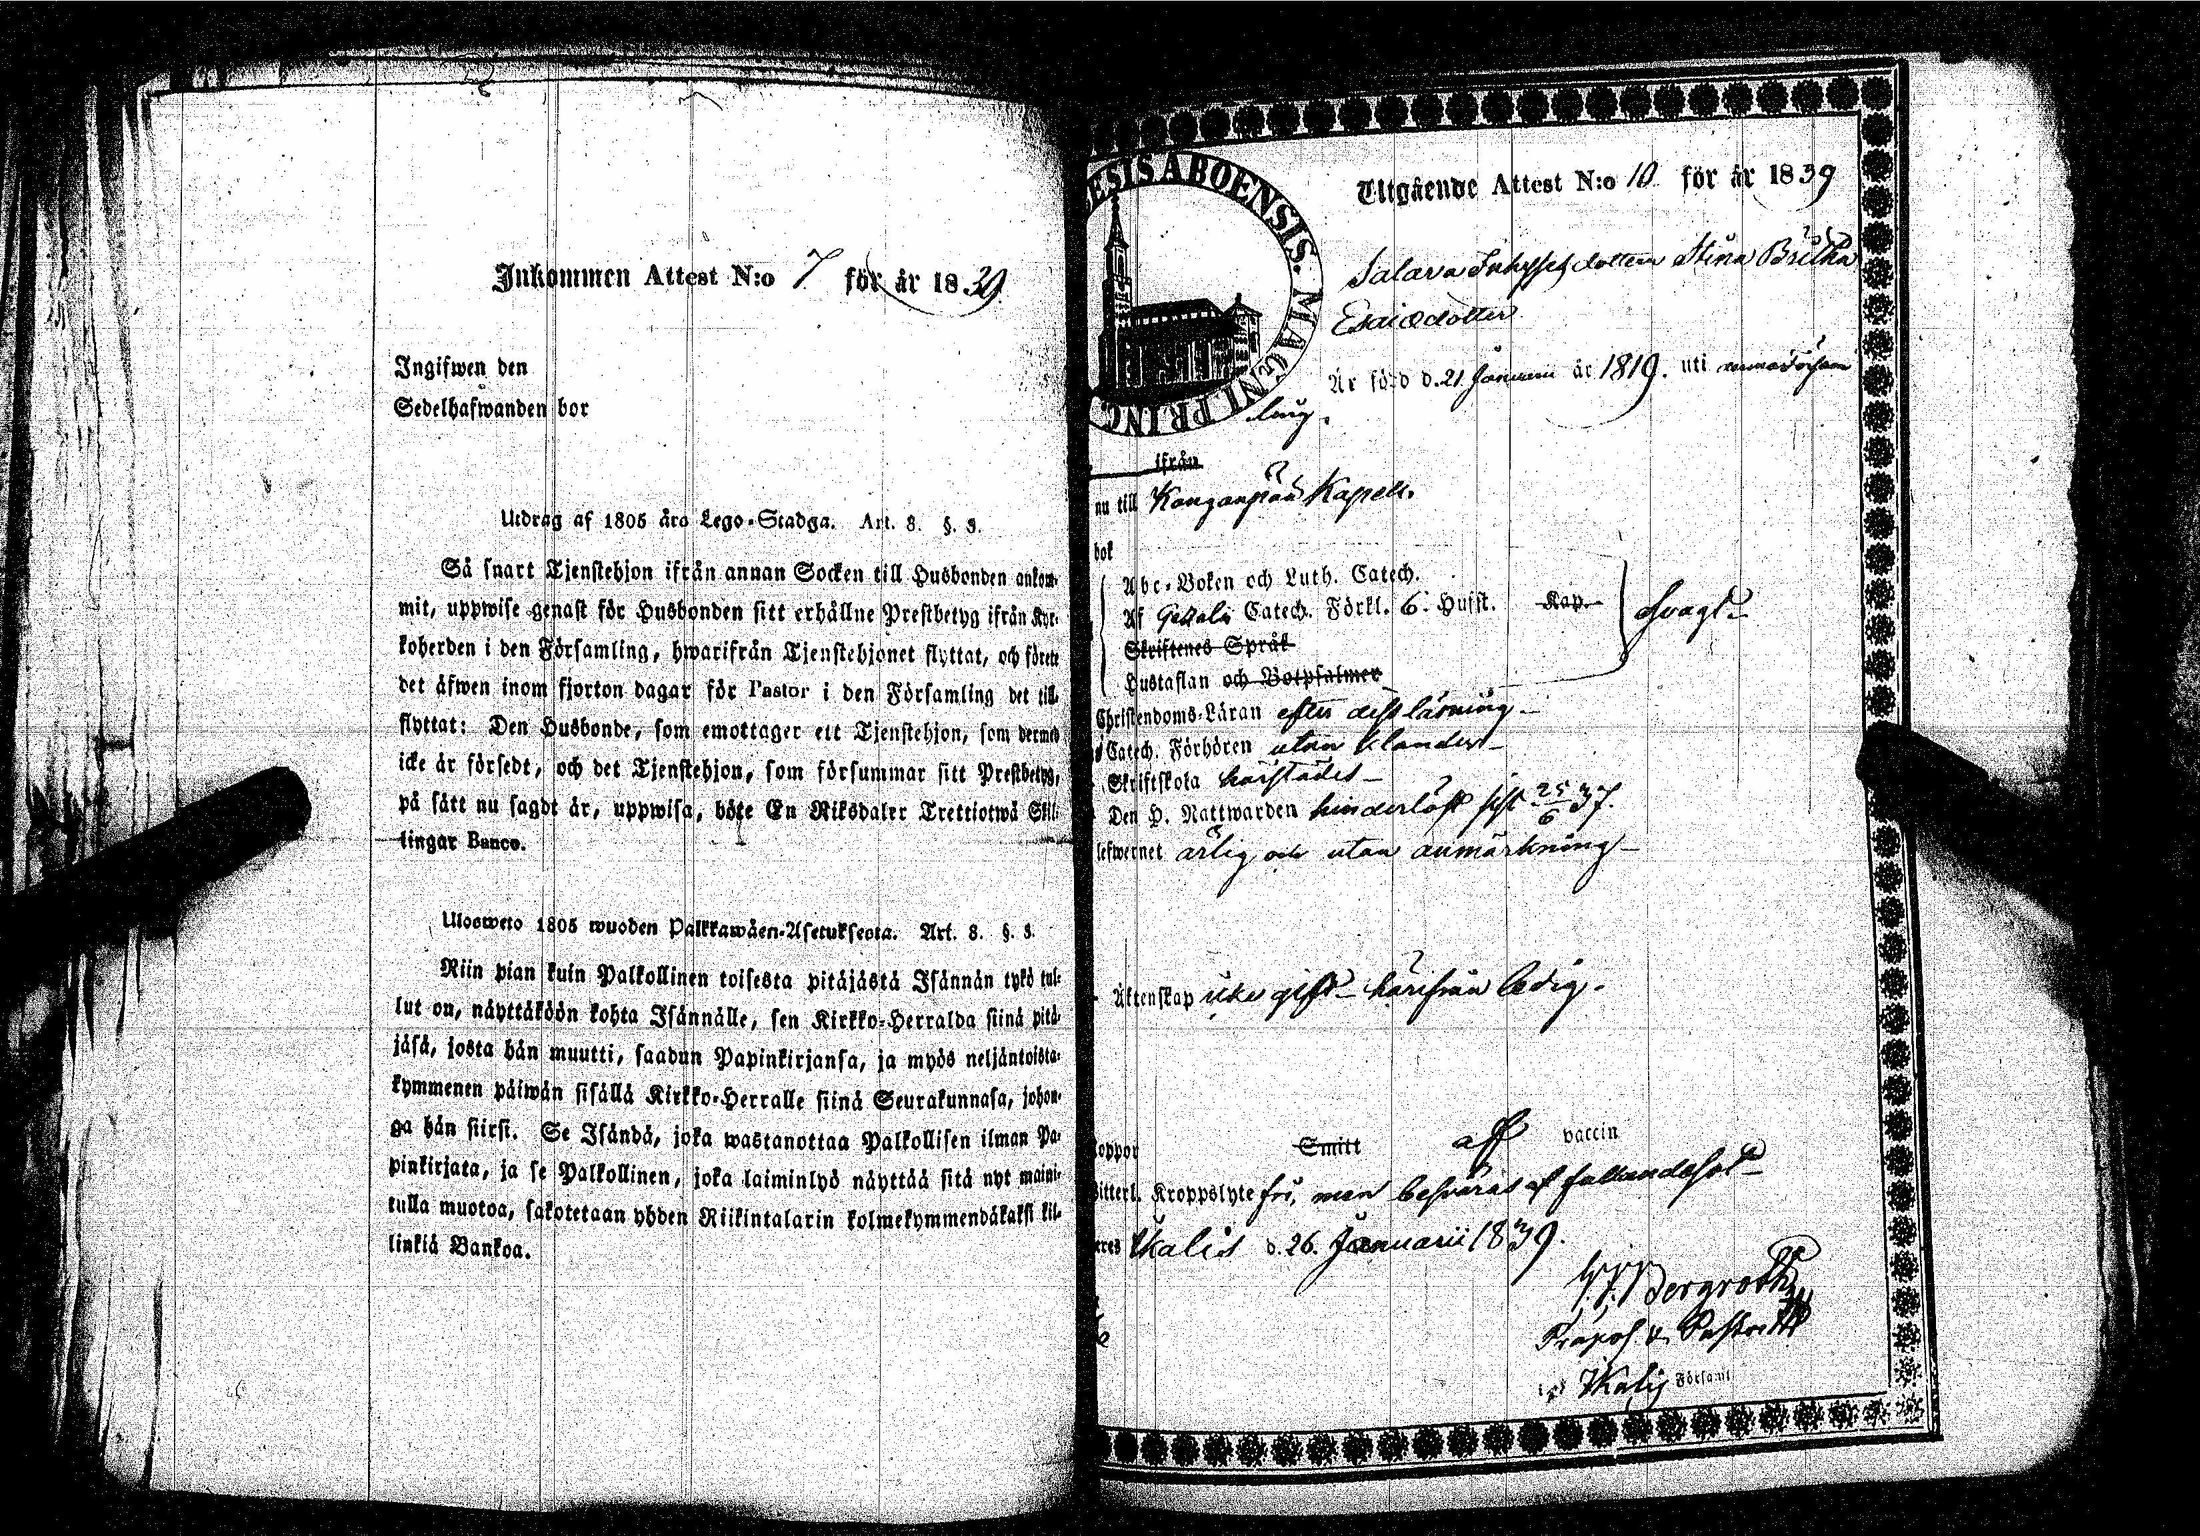 Inkommen Attest N:o 7 för år 1839.
Ingifwen den
Sedelhafwanden bor
Utdrag af 1805 års Lego-Stadga. Art. 8. §. 3.
Så snart Tjenstehjon ifrån annan Socken till Husbonden ankom-
mit, uppwise genast för Husbonden sitt erhållne Prestbetyg ifrån Kyr-
koherden i den Församling, hwarifrån Tjenstehjonet flyttat, och förete
det äfwen inom fjorton dagar för Pastor i den Församling det till-
flyttat: Den Husbonde, som emottager ett Tjenstehjon, som dermed
icke är försedt, och det Tjenstehjon, som försummar sitt Prestbetyg,
på sätt nu sagdt är, uppwisa, böte En Riksdaler Trettiotwå Skil-
lingar Banco.
Ulosweto 1805 wuoden Palkkawäen-Asetuksesta. Art. 8. §. 3.
Niin pian kuin Palkollinen toisesta pitäjästä Isännän tykö tul-
lut on, näyttäköön kohta Isännälle, sen Kirkko-Herralda siinä pitä-
jäsä, josta hän muutti, saadun Papinkirjansa, ja myös neljäntoista-
kymmenen päiwän sisällä Kirkko-Herralle siinä Seurakunnasa, johon-
ga hän siirsi. Se Isändä, joka wastanottaa Palkollisen ilman Pa-
pinkirjata, ja se Palkollinen, joka laiminlyö näyttää sitä nyt maini-
tulla muotoa, sakotetaan yhden Riikintalarin kolmekymmendäkaksi kil-
linkiä Bankoa.
ESIS ABOENSIS. MAGNI PRINC
Utgående Attest N:o 10 för år 1839
Salava Inhysesdottern Stina Britha
Esaiædotter
Är född d. 21 Januarii år 1819. uti annan församling.
ifrån
nu till Kanganpää Kapell.
bok
Abc-Boken och Luth. Catech.
Af Gezelii Catech. Förkl. 6. Hufst. Kap. svagt
Skriftenes Språk
Hustaflan och Botpsalmer
Christendoms-Läran efter dess läsning
Catech. Förhören utan klander
Skriftskola härstädes
Den H. Nattwarden hinderlöst sist 25/6 37.
lefwernet ärlig och utan anmärkning
Äktenskap icke gift härifrån ledig.
koppor Smitt aff vaccin
Kroppslyte fri, men besväras af fallandesot
Ikalis d. 26. Januarii 1839.
Bergroth
Ikalis Församl